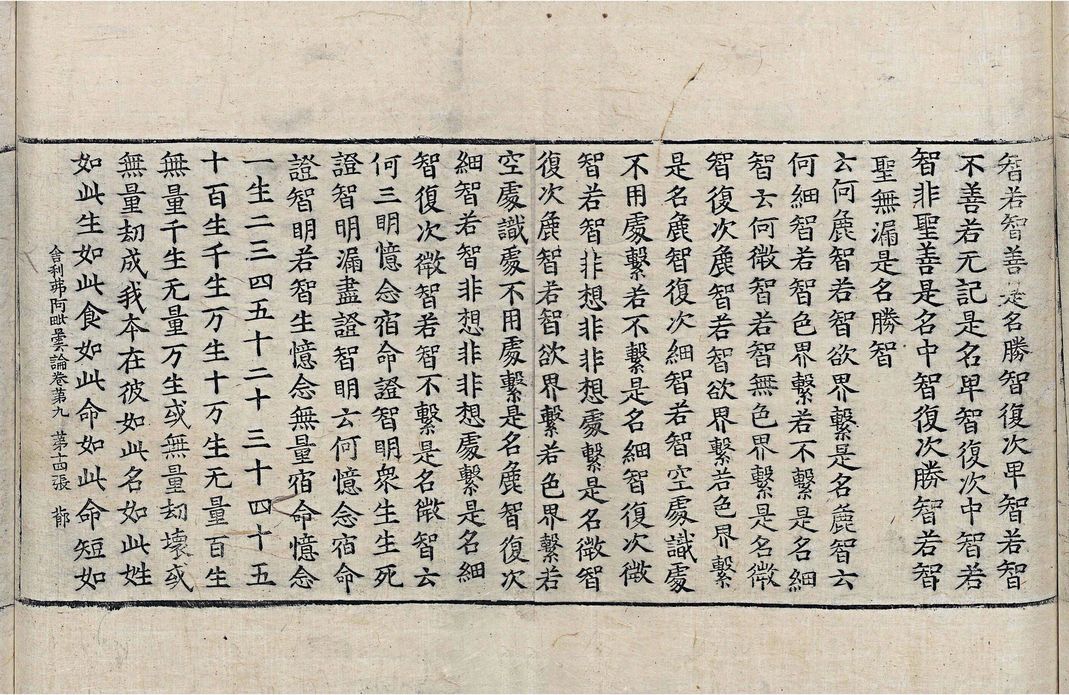 智若智善是名勝智復次卑智若智
不善若无記是名卑智復次中智若
智非聖善是名中智復次勝智若智
聖無漏是名勝智
云何麁智若智欲界繫是名麁智云
何細智若智色界繫若不繫是名細
智云何微智若智無色界繫是名微
智復次麁智若智欲界繫若色界繫
是名麁智復次細智若智空處識處
不用處繫若不繫是名細智復次微
智若智非想非非想處繫是名微智
復次麁智若智欲界繫若色界繫若
空處識處不用處繫是名麁智復次
細智若智非想非非想處繫是名細
智復次微智若智不繫是名微智云
何三明憶念宿命證智明衆生生死
證智明漏盡證智明云何憶念宿命
證智明若智生憶念無量宿命憶念
一生二三四五十二十三十四十五
十百生千生万生十万生无量百生
無量千生无量万生或無量劫壞或
無量劫成我本在彼如此名如此姓
如此生如此食如此命如此命短如
舍利弗阿毗曇論卷第九 第十四張 節